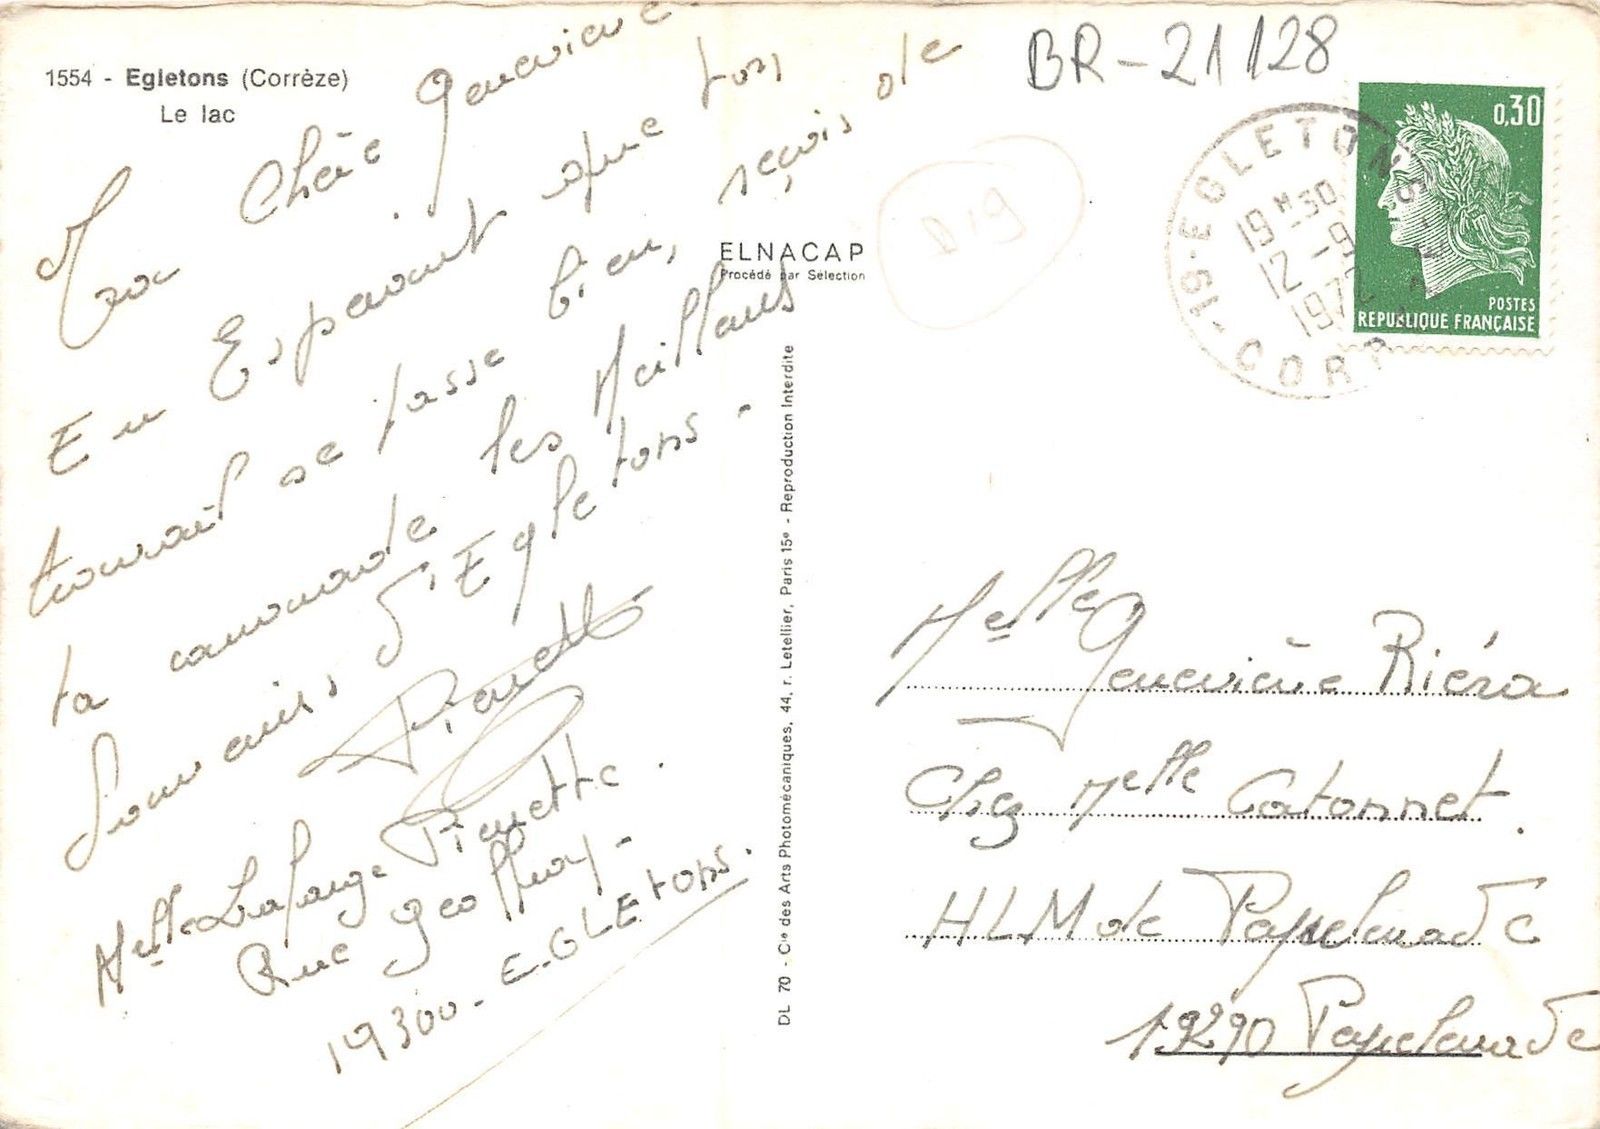 1554 - Egletons (Corrèze)
Le lac
Ma Chère Geneviève.
En Espérant que ton
travail se passe bien, reçois de
ta camarade les Meilleurs
Souvenirs d'Egletons -
Pierrette
Melle Lafarge Pierrette.
Rue Geoffroy -
19300 - EGLETONS.
ELNACAP
Procédé par Sélection
DL 70 - Cie des Arts Photomécaniques, 44, r. Letellier, Paris 15e - Reproduction Interdite
BR-21128
D19
0,30
POSTES
REPUBLIQUE FRANÇAISE
19-EGLETONS
19H30
12-9
CORREZE
Melle Geneviève Riéra
Chez Melle Catonnet.
HLM de Peyrelevade
19290 Peyrelevade